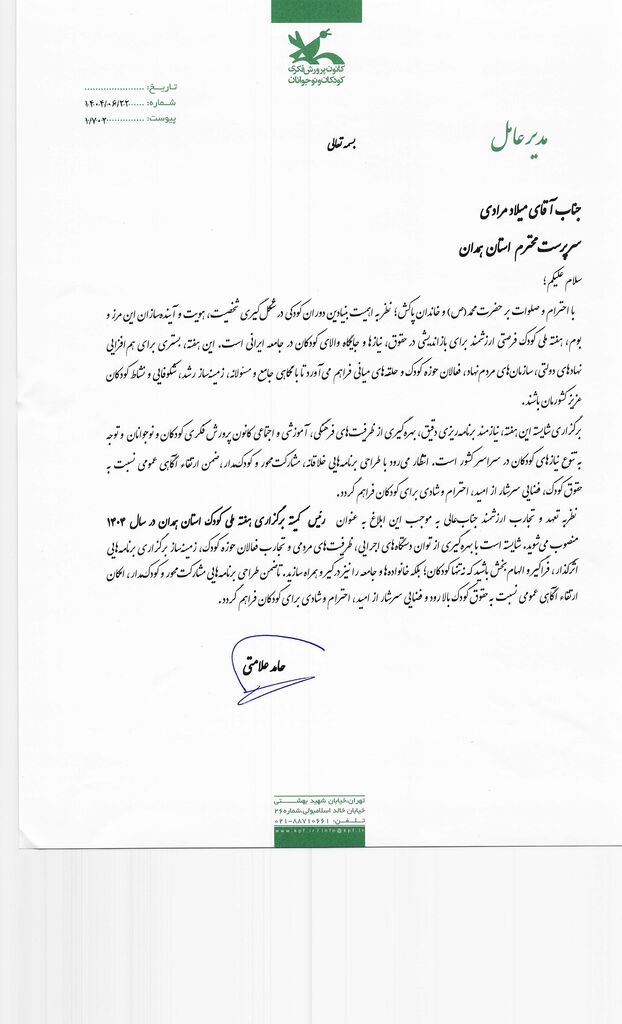 کانون پرورش فکری
کودکان و نوجوانان
تاریخ: ......................
شماره: ......۱۴۰۴/۰۶/۲۲
پیوست: ..............۱/۷۰۲
مدیر عامل
بسمه تعالی
جناب آقای میلاد مرادی
سرپرست محترم استان همدان
سلام علیکم؛
با احترام و صلوات بر حضرت محمد (ص) و خاندان پاکش؛ نظر به اهمیت بنیادین دوران کودکی در شکل گیری شخصیت، هویت و آینده سازان این مرز و
بوم، هفته ملی کودک فرصتی ارزشمند برای بازاندیشی در حقوق، نیازها و جایگاه والای کودکان در جامعه ایرانی است. این هفته، بستری برای هم افزایی
نهادهای دولتی، سازمان های مردم نهاد، فعالان حوزه کودک و حلقه های میانی فراهم می آورد تا با نگاهی جامع و مسئولانه، زمینه ساز رشد، شکوفایی و نشاط کودکان
عزیز کشورمان باشند.
برگزاری شایسته این هفته، نیازمند برنامه ریزی دقیق، بهره گیری از ظرفیت های فرهنگی، آموزشی و اجتماعی کانون پرورش فکری کودکان و نوجوانان و توجه
به تنوع نیازهای کودکان در سراسر کشور است. انتظار می رود با طراحی برنامه هایی خلاقانه، مشارکت محور و کودک مدار، ضمن ارتقاء آگاهی عمومی نسبت به
حقوق کودک، فضایی سرشار از امید، احترام و شادی برای کودکان فراهم گردد.
نظر به تعهد و تجارب ارزشمند جناب عالی به موجب این ابلاغ به عنوان رئیس کمیته برگزاری هفته ملی کودک استان همدان در سال ۱۴۰۴
منصوب می شوید. شایسته است با بهره گیری از توان دستگاه های اجرایی، ظرفیت های مردمی و تجارب فعالان حوزه کودک، زمینه ساز برگزاری برنامه هایی
اثرگذار، فراگیر و الهام بخش باشید که نه تنها کودکان؛ بلکه خانواده ها و جامعه را نیز درگیر و همراه سازید. تا ضمن طراحی برنامه هایی مشارکت محور و کودک مدار، امکان
ارتقاء آگاهی عمومی نسبت به حقوق کودک بالا رود و فضایی سرشار از امید، احترام و شادی برای کودکان فراهم گردد.
حامد علامتی
تهران،خیابان شهید بهشتی
خیابان خالد اسلامبولی،شماره۲۶
تلفن: ۸۸۷۱۰۶۶۱-۰۲۱
www.kpf.ir/info@kpf.ir